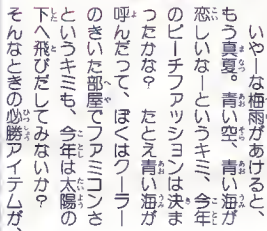 いやーな梅雨があけると、
もう真夏。青い空、青い海が
恋しいなーというキミ、今年
のビーチファッションは決ま
ったかな？　たとえ青い海が
呼んだって、ぼくはクーラー
のきいた部屋でファミコンさ
というキミも、今年は太陽の
下へ飛びだしてみないか？
そんなときの必勝アイテムが、